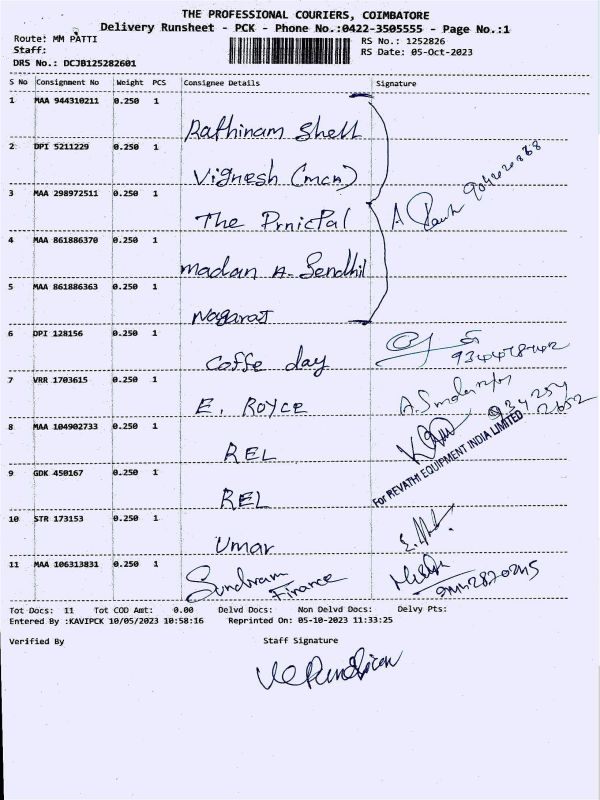 THE PROFESSIONAL COURIERS, COIMBATORE
Delivery Runsheet - PCK - Phone No.:0422-3505555 - Page No.:1
Route: MM PATTI
RS No.: 1252826
Staff:
RS Date: 05-Oct-2023
DRS No.: DCJB125282601
S No Consignment No Weight PCS Consignee Details Signature
1 MAA 944310211 0.250 1 Rathinam Shell
2 DPI 5211229 0.250 1 Vignesh (mcn)
3 MAA 298972511 0.250 1 The PrnicPal
4 MAA 861886370 0.250 1 madan A. Sendhil
5 MAA 861886363 0.250 1 Nagaraj
6 DPI 128156 0.250 1 Coffe day
7 VRR 1703615 0.250 1 E. ROYCE
8 MAA 104902733 0.250 1 REL
For REVATHI EQUIPMENT INDIA LIMITED
9 GDK 450167 0.250 1 REL
10 STR 173153 0.250 1 Umar
11 MAA 106313831 0.250 1 Sundram Finance
Tot Docs: 11 Tot COD Amt: 0.00 Delvd Docs: Non Delvd Docs: Delvy Pts:
Entered By :KAVIPCK 10/05/2023 10:58:16 Reprinted On: 05-10-2023 11:33:25
Verified By Staff Signature